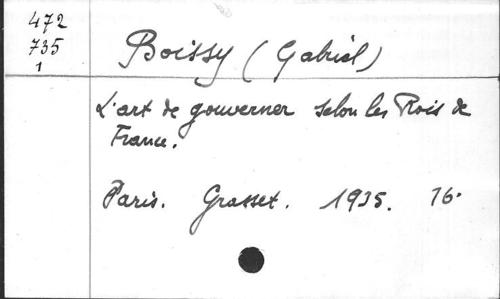 472
735
1
Boissy (Gabriel)
L'art de gouverner selon les Rois de
France.
Paris. Grasset. 1935. 16°